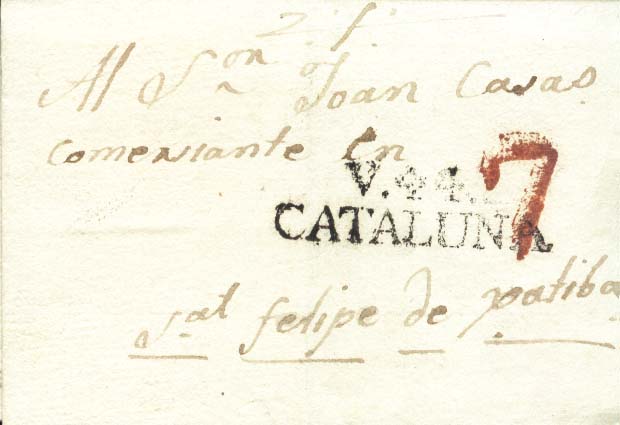 Al Sor Joan Casas
comersiante En
V.44.
CATALUNA
7
Sat felipe de xatiba